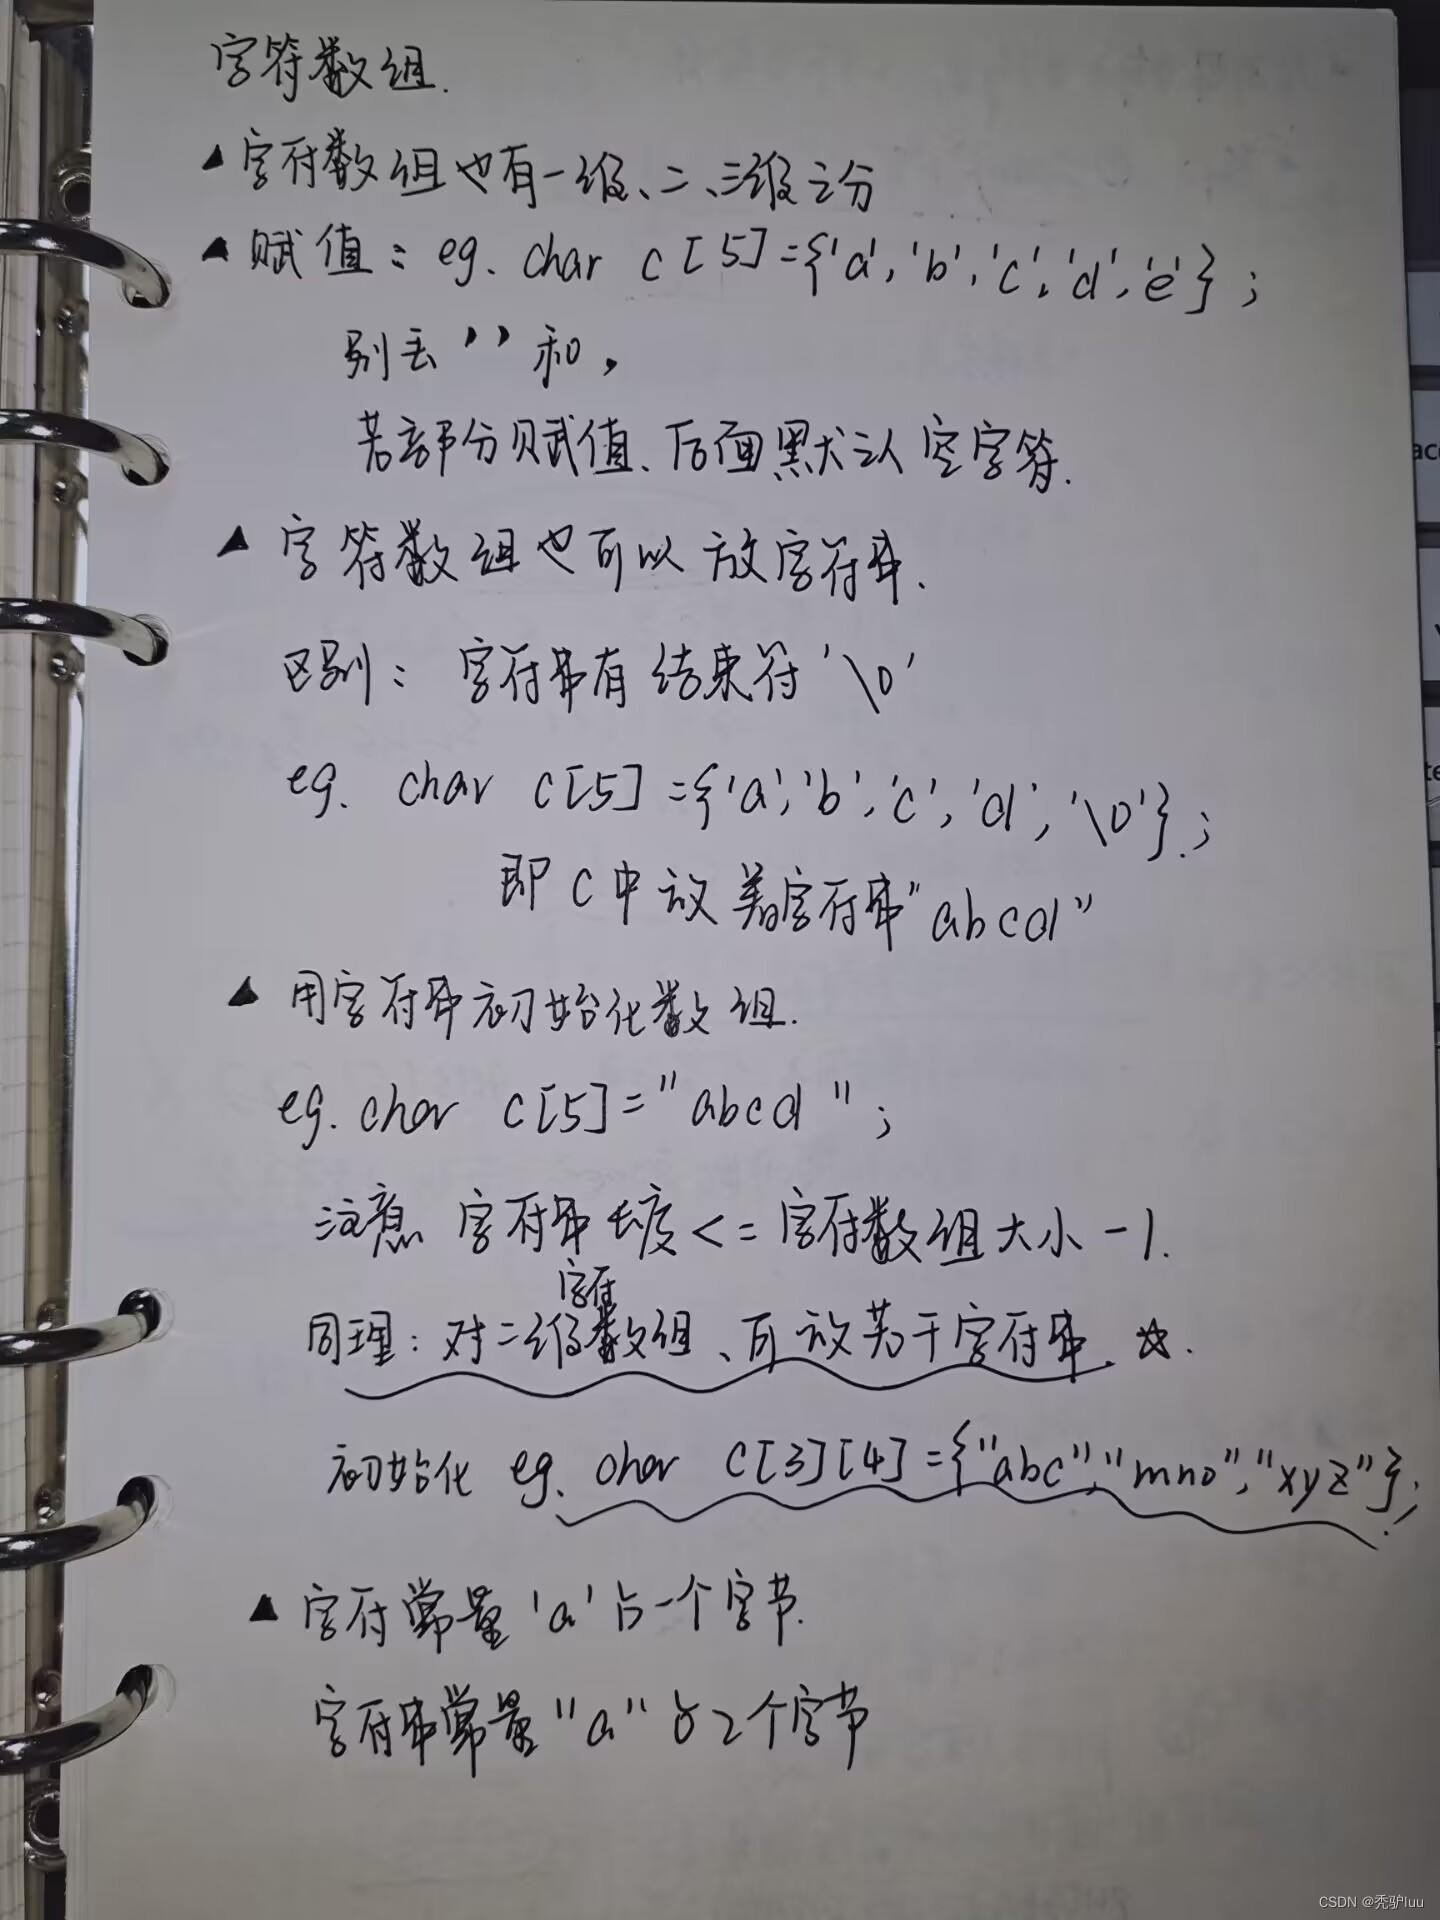 字符数组.
▲ 字符数组也有一维、二、三维之分
▲ 赋值: eg. char c[5]={'a','b','c','d','e'};
别丢 ' ' 和 ,
若部分赋值、后面默认空字符.
▲ 字符数组也可以放字符串.
区别: 字符串有结束符'\0'
eg. char c[5]={'a','b','c','d','\0'};
即c中放着字符串"abcd"
▲ 用字符串初始化数组.
eg. char c[5]="abcd";
注意 字符串长度<=字符数组大小-1.
同理: 对二维字符数组、可放若干字符串. ☆.
初始化 eg. char c[3][4]={"abc","mno","xyz"};
▲ 字符常量'a'占一个字节.
字符串常量"a"占2个字节
CSDN @秃驴luu